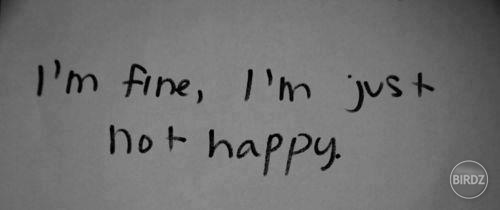 I'm fine, I'm just
not happy.
BIRDZ